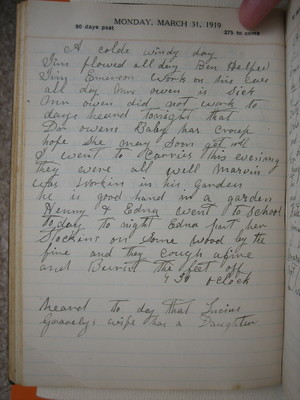 90 days past
MONDAY, MARCH 31, 1919
275 to come
A colde windy day
Jim plowed all day Ben Helped
Jim Emerson Work on his
all day Mrs owen is Sick
Ann owen did not work to
days heard tonight that
Dar owens Baby has croup
hope She may Soon get well
I went to Carries this evening
they were all well Marvin
was Workin in his Garden
he is good hand in a garden
Henny & Edna went to School
to day to night Edna put her
Stockins on Some wood by the
fire and they cough afire
and Burnt the feet off
7 30 oclock
heard to day that Lucius
Gravelys wife has a Daughter